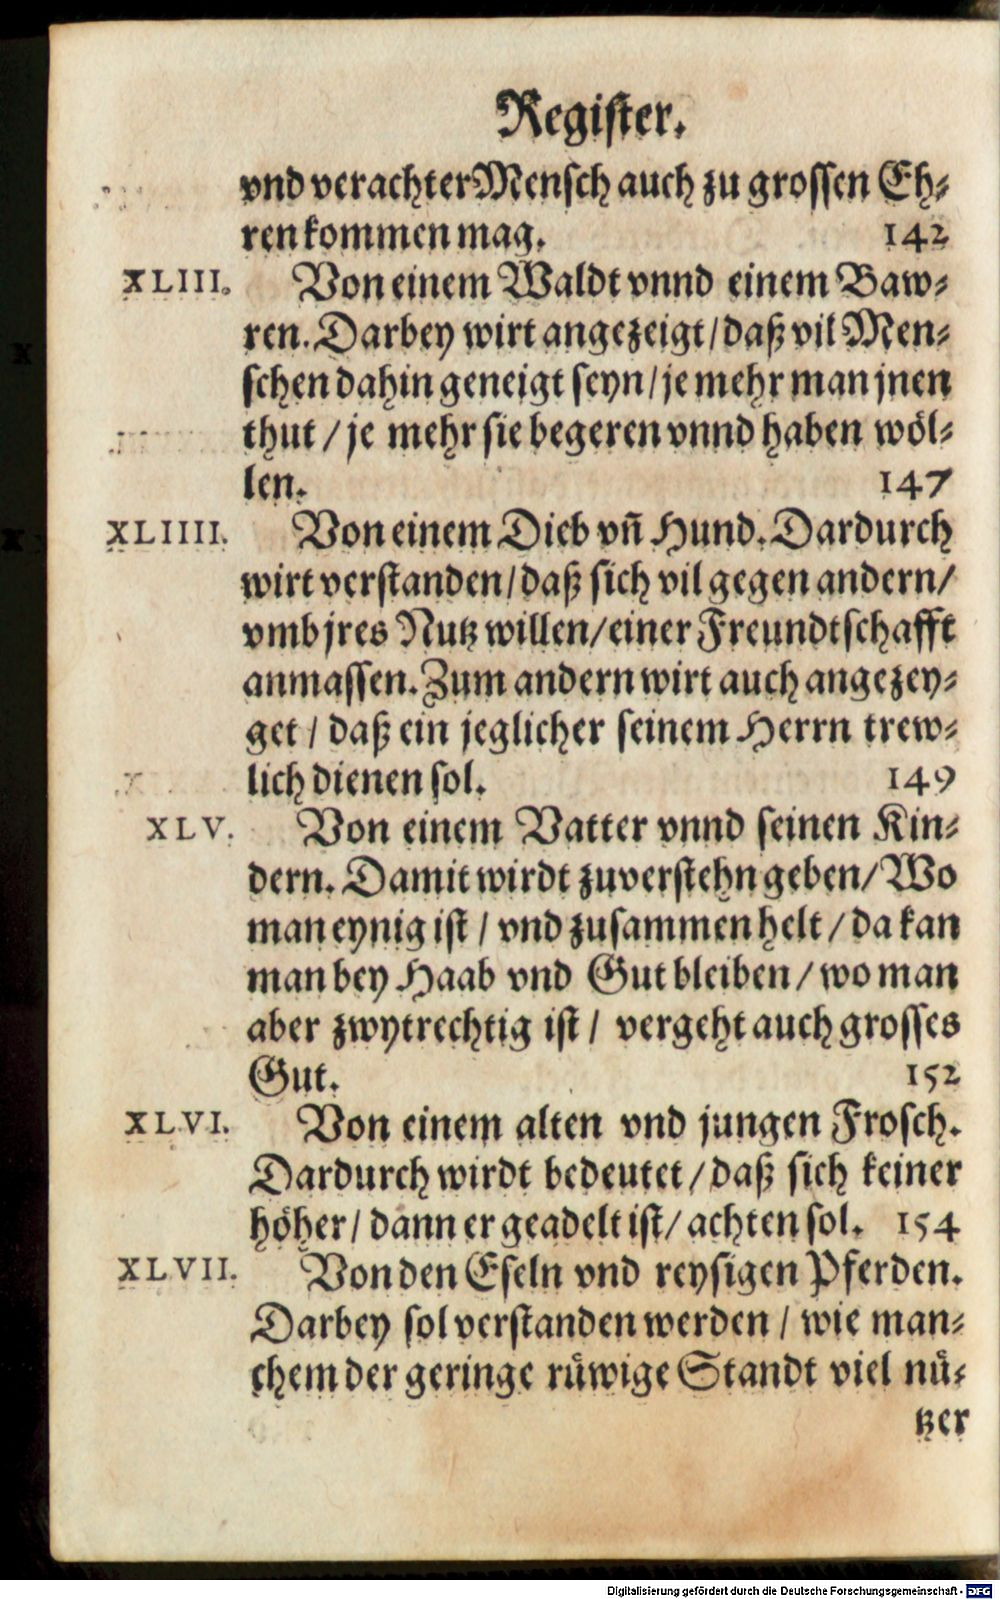 Register.
vnd verachter Mensch auch zu grossen Eh⸗
ren kommen mag. 142
XLIII. Von einem Waldt vnnd einem Baw⸗
ren. Darbey wirt angezeigt/ daß vil Men⸗
schen dahin geneigt seyn/ je mehr man jnen
thut/ je mehr sie begeren vnnd haben wöl⸗
len. 147
XLIIII. Von einem Dieb vñ Hund. Dardurch
wirt verstanden/ daß sich vil gegen andern/
vmb jres Nutz willen/ einer Freundtschafft
anmassen. Zum andern wirt auch angezey⸗
get/ daß ein jeglicher seinem Herrn trew⸗
lich dienen sol. 149
XLV. Von einem Vatter vnnd seinen Kin⸗
dern. Damit wirdt zuverstehn geben/ Wo
man eynig ist/ vnd zusammen helt/ da kan
man bey Haab vnd Gut bleiben/ wo man
aber zwytrechtig ist/ vergeht auch grosses
Gut. 152
XLVI. Von einem alten vnd jungen Frosch.
Dardurch wirdt bedeutet/ daß sich keiner
höher/ dann er geadelt ist/ achten sol. 154
XLVII. Von den Eseln vnd reysigen Pferden.
Darbey sol verstanden werden/ wie man⸗
chem der geringe rüwige Standt viel nü⸗
tzer
Digitalisierung gefördert durch die Deutsche Forschungsgemeinschaft - DFG